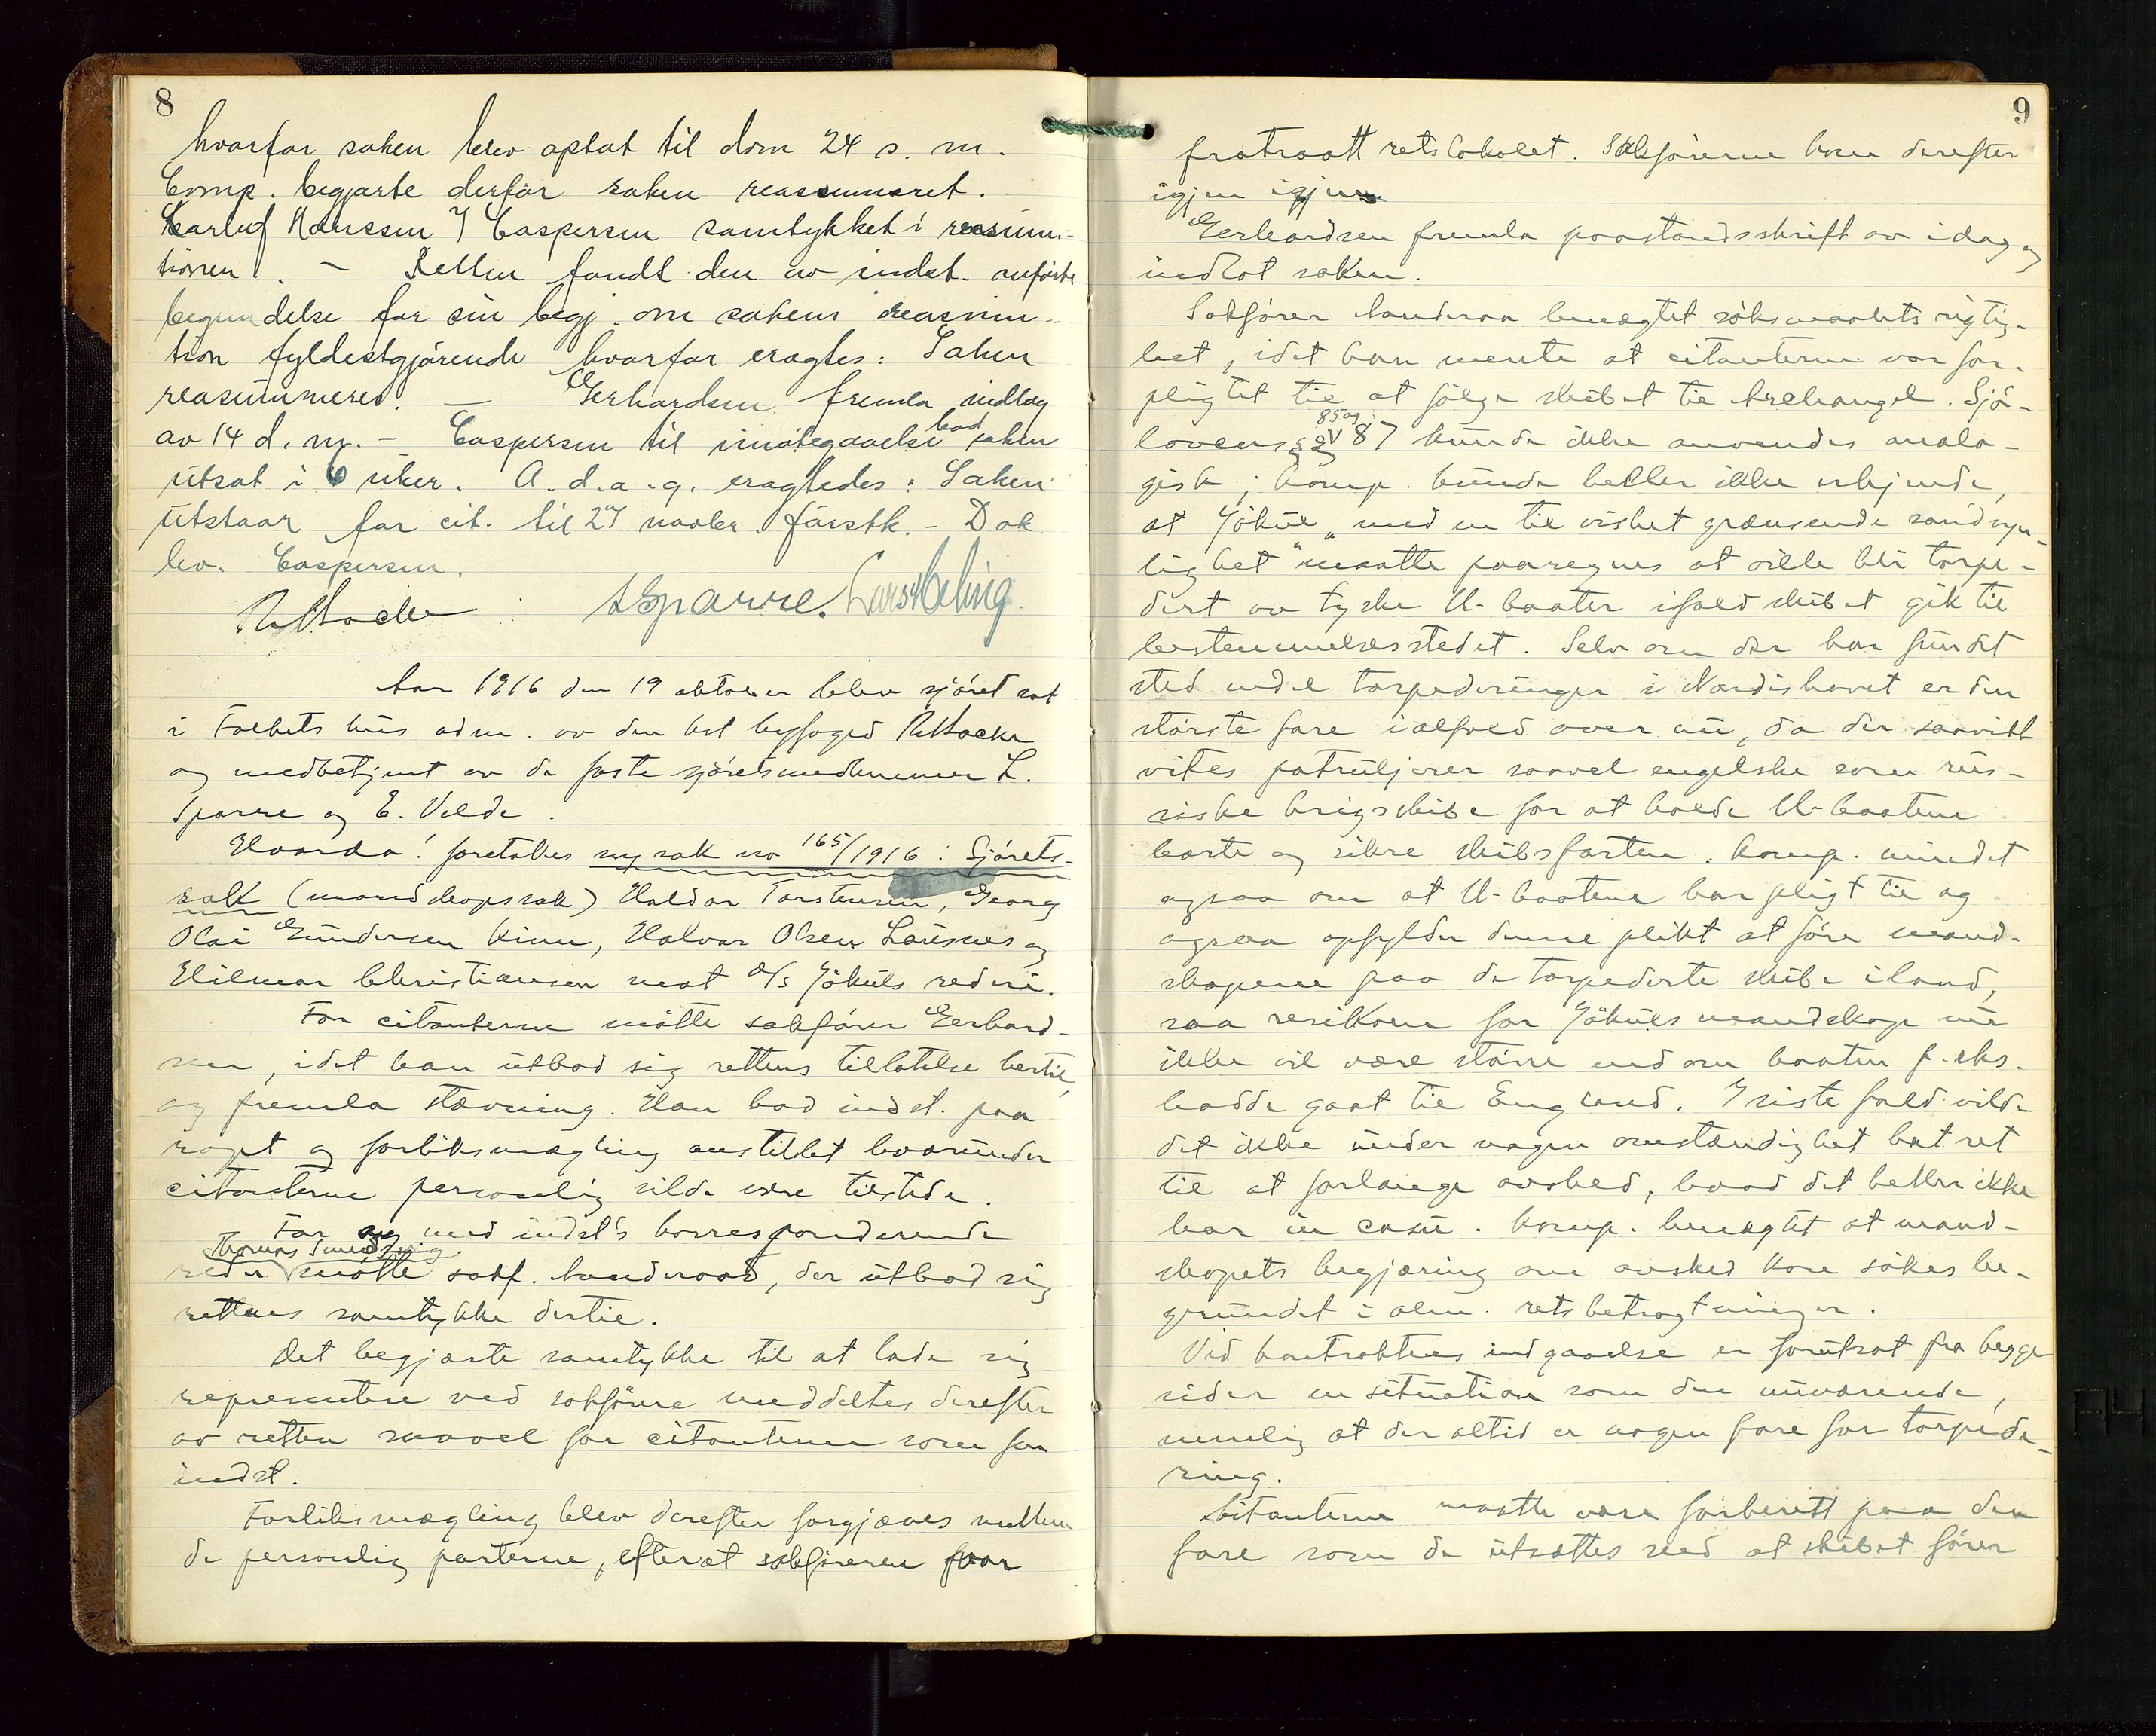 8
hvorfor saken blev optat til dom 24 s. m.
Comp. begjærte derfor saken reassumeret.
Hanssen Caspersen samtykket i reasum-
tionen. – Retten fandt den av indst. anførte
begrundelse for sin begj. om sakens reasum-
tion fyldestgjørende hvorfor eragtes: Saken
reasummeres. – Gerhardsen fremla indlæg
av 14 d. m. – Caspersen til imøtegaaelse bad saken
utsat i 6 uker. A. d. a. g. eragtedes: Saken
utstaar for cit. til 27 novbr. førstk. – Dok.
lev. Caspersen.
LSparre.
Aar 1916 den 19 oktober blev sjøret sat
i Folkets hus adm. av den kst byfoged
og medbetjent av de faste sjøretsmedlemmer L.
Sparre og E. Velde.
Hvorda! foretokes ny sak no 165/1916: Sjørets-
sak (mandskapssak) Haldor Torstensen, Georg
Olai Gundersen Kinn, Halvor Olsen Lausnes og
Hilmar Christiansen mot A/s Jøkuls rederi.
For citanterne møtte sakfører Gerhard-
sen, idet han utbad sig rettens tillatelse hertil,
og fremla stævning. Han bad indst. paa
ropt og forliksmægling anstillet hvorunder
citanterne personlig vilde være tilstede.
For og med indst's korresponderende
Thomas Smedsvig
reder møtte sakf. Landeraas, der utbad sig
rettens samtykke dertil.
Det begjærte samtykke til at lade sig
representere ved sakfører meddeltes derefter
av retten saavel for citanterne som for
indst.
Forliksmægling blev derefter forgjæves mellem
de personlig parterne, efterat sakføreren hvor
9
fratraatt retslokalet. Sakførerne kom derefter
igjen igjen
Gerhardsen fremla paastandsskrift av idag og
indlot saken.
Sakfører Landeraa benægtet søksmaalets rigtig-
het, idet han mente at citanterne var for-
pligtet til at følge skibet til Archangel. Sjø-
85 og
lovens §§ 87 kunde ikke anvendes analo-
gisk; komp. kunde heller ikke erkjende,
at Jøkul „med en til vished grænsende sandsyn-
lighet" maatte paaregnes at ville bli torpe-
dert av tyske U-baater ifald skibet gik til
bestemmelsesstedet. Selv om der har fundet
sted endel torpederinger i Nordishavet er den
største fare ialfald over nu, da der saavidt
vites patruljerer saavel engelske som rus-
siske krigsskibe for at holde U-baatene
borte og sikre skibsfarten. Komp. mindet
ogsaa om at U-baatene har pligt til og
ogsaa opfylder denne plikt at føre mand-
skapene paa de torpederte skibe iland,
saa resikoen for Jøkuls mandskap nu
ikke vil være større end om baaten f.eks.
hadde gaat til England. I siste fald vilde
det ikke under nogen omstændighet hat ret
til at forlange avsked, hvad det heller ikke
har in casu. Komp. benægtet at mand-
skapets begjæring om avsked kan søkes be-
grundet i alm. retsbetragtninger.
Ved kontraktens indgaaelse er forutsat fra begge
sider en situation som den nuværende,
nemlig at der altid er nogen fare for torpede-
ring.
Citanterne maatte være forberett paa den
fare som de utsættes med at skibet fører